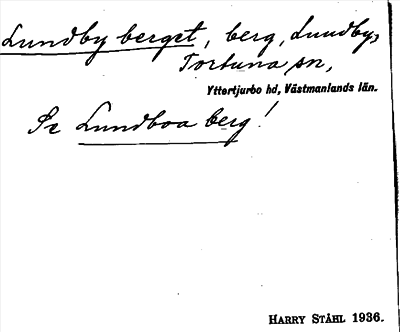 Lundby berget, berg, Lundby,
Tortuna sn,
Yttertjurbo hd, Västmanlands län.
Se Lundboa berg!
HARRY STÅHL 1936.